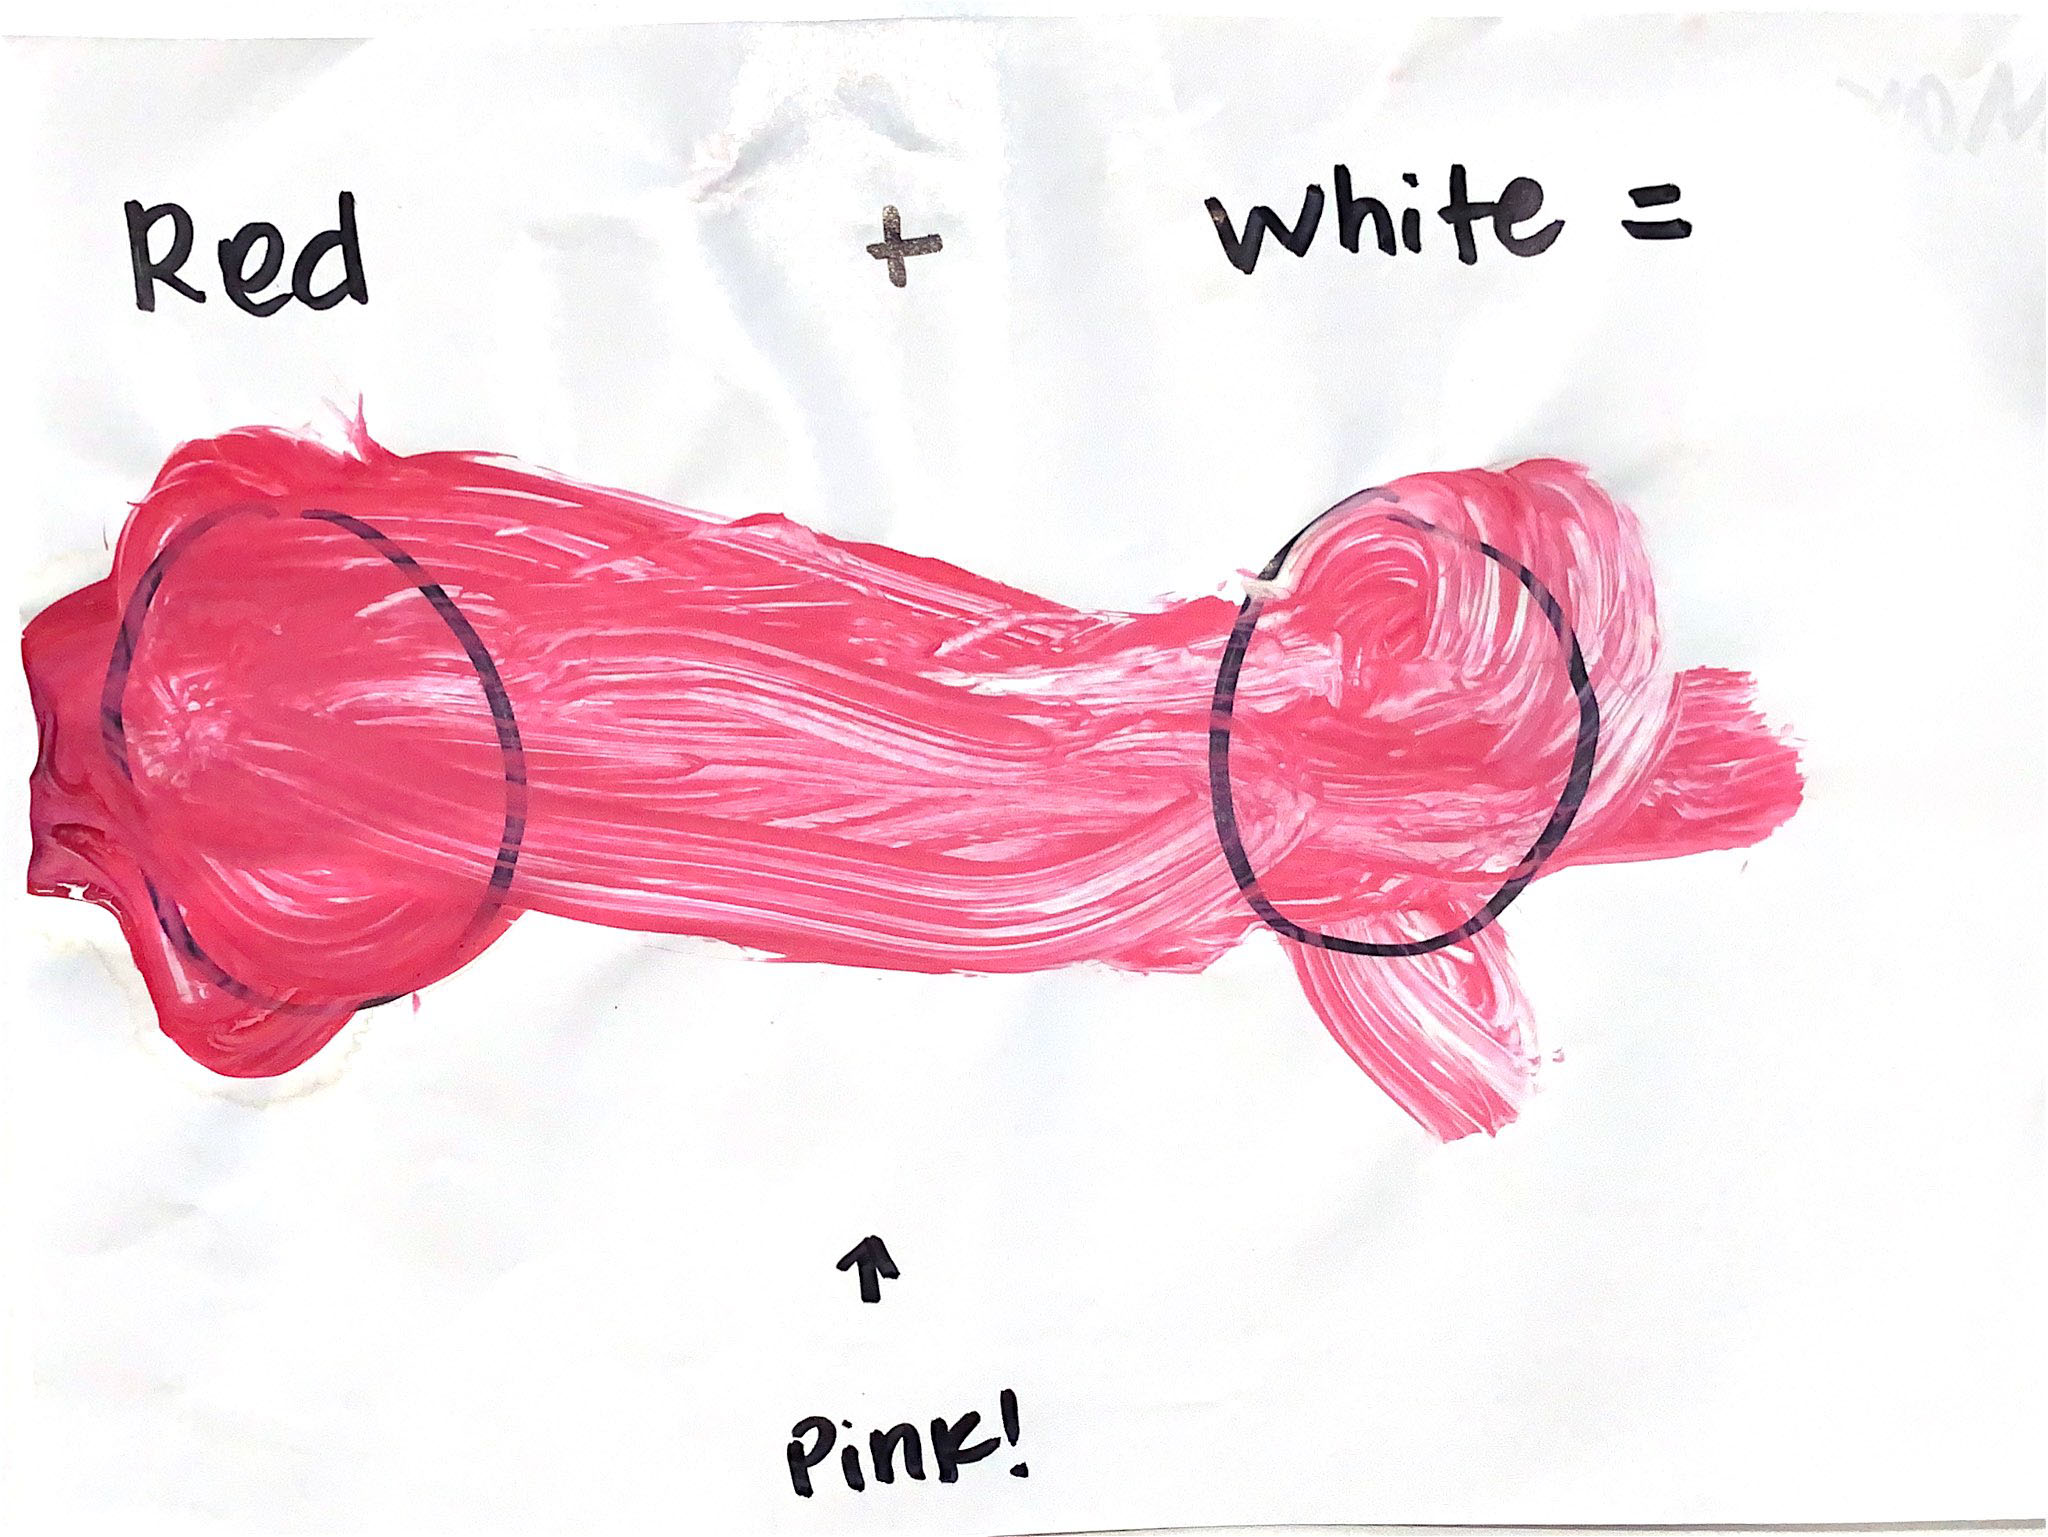 Red + white =
↑
Pink!